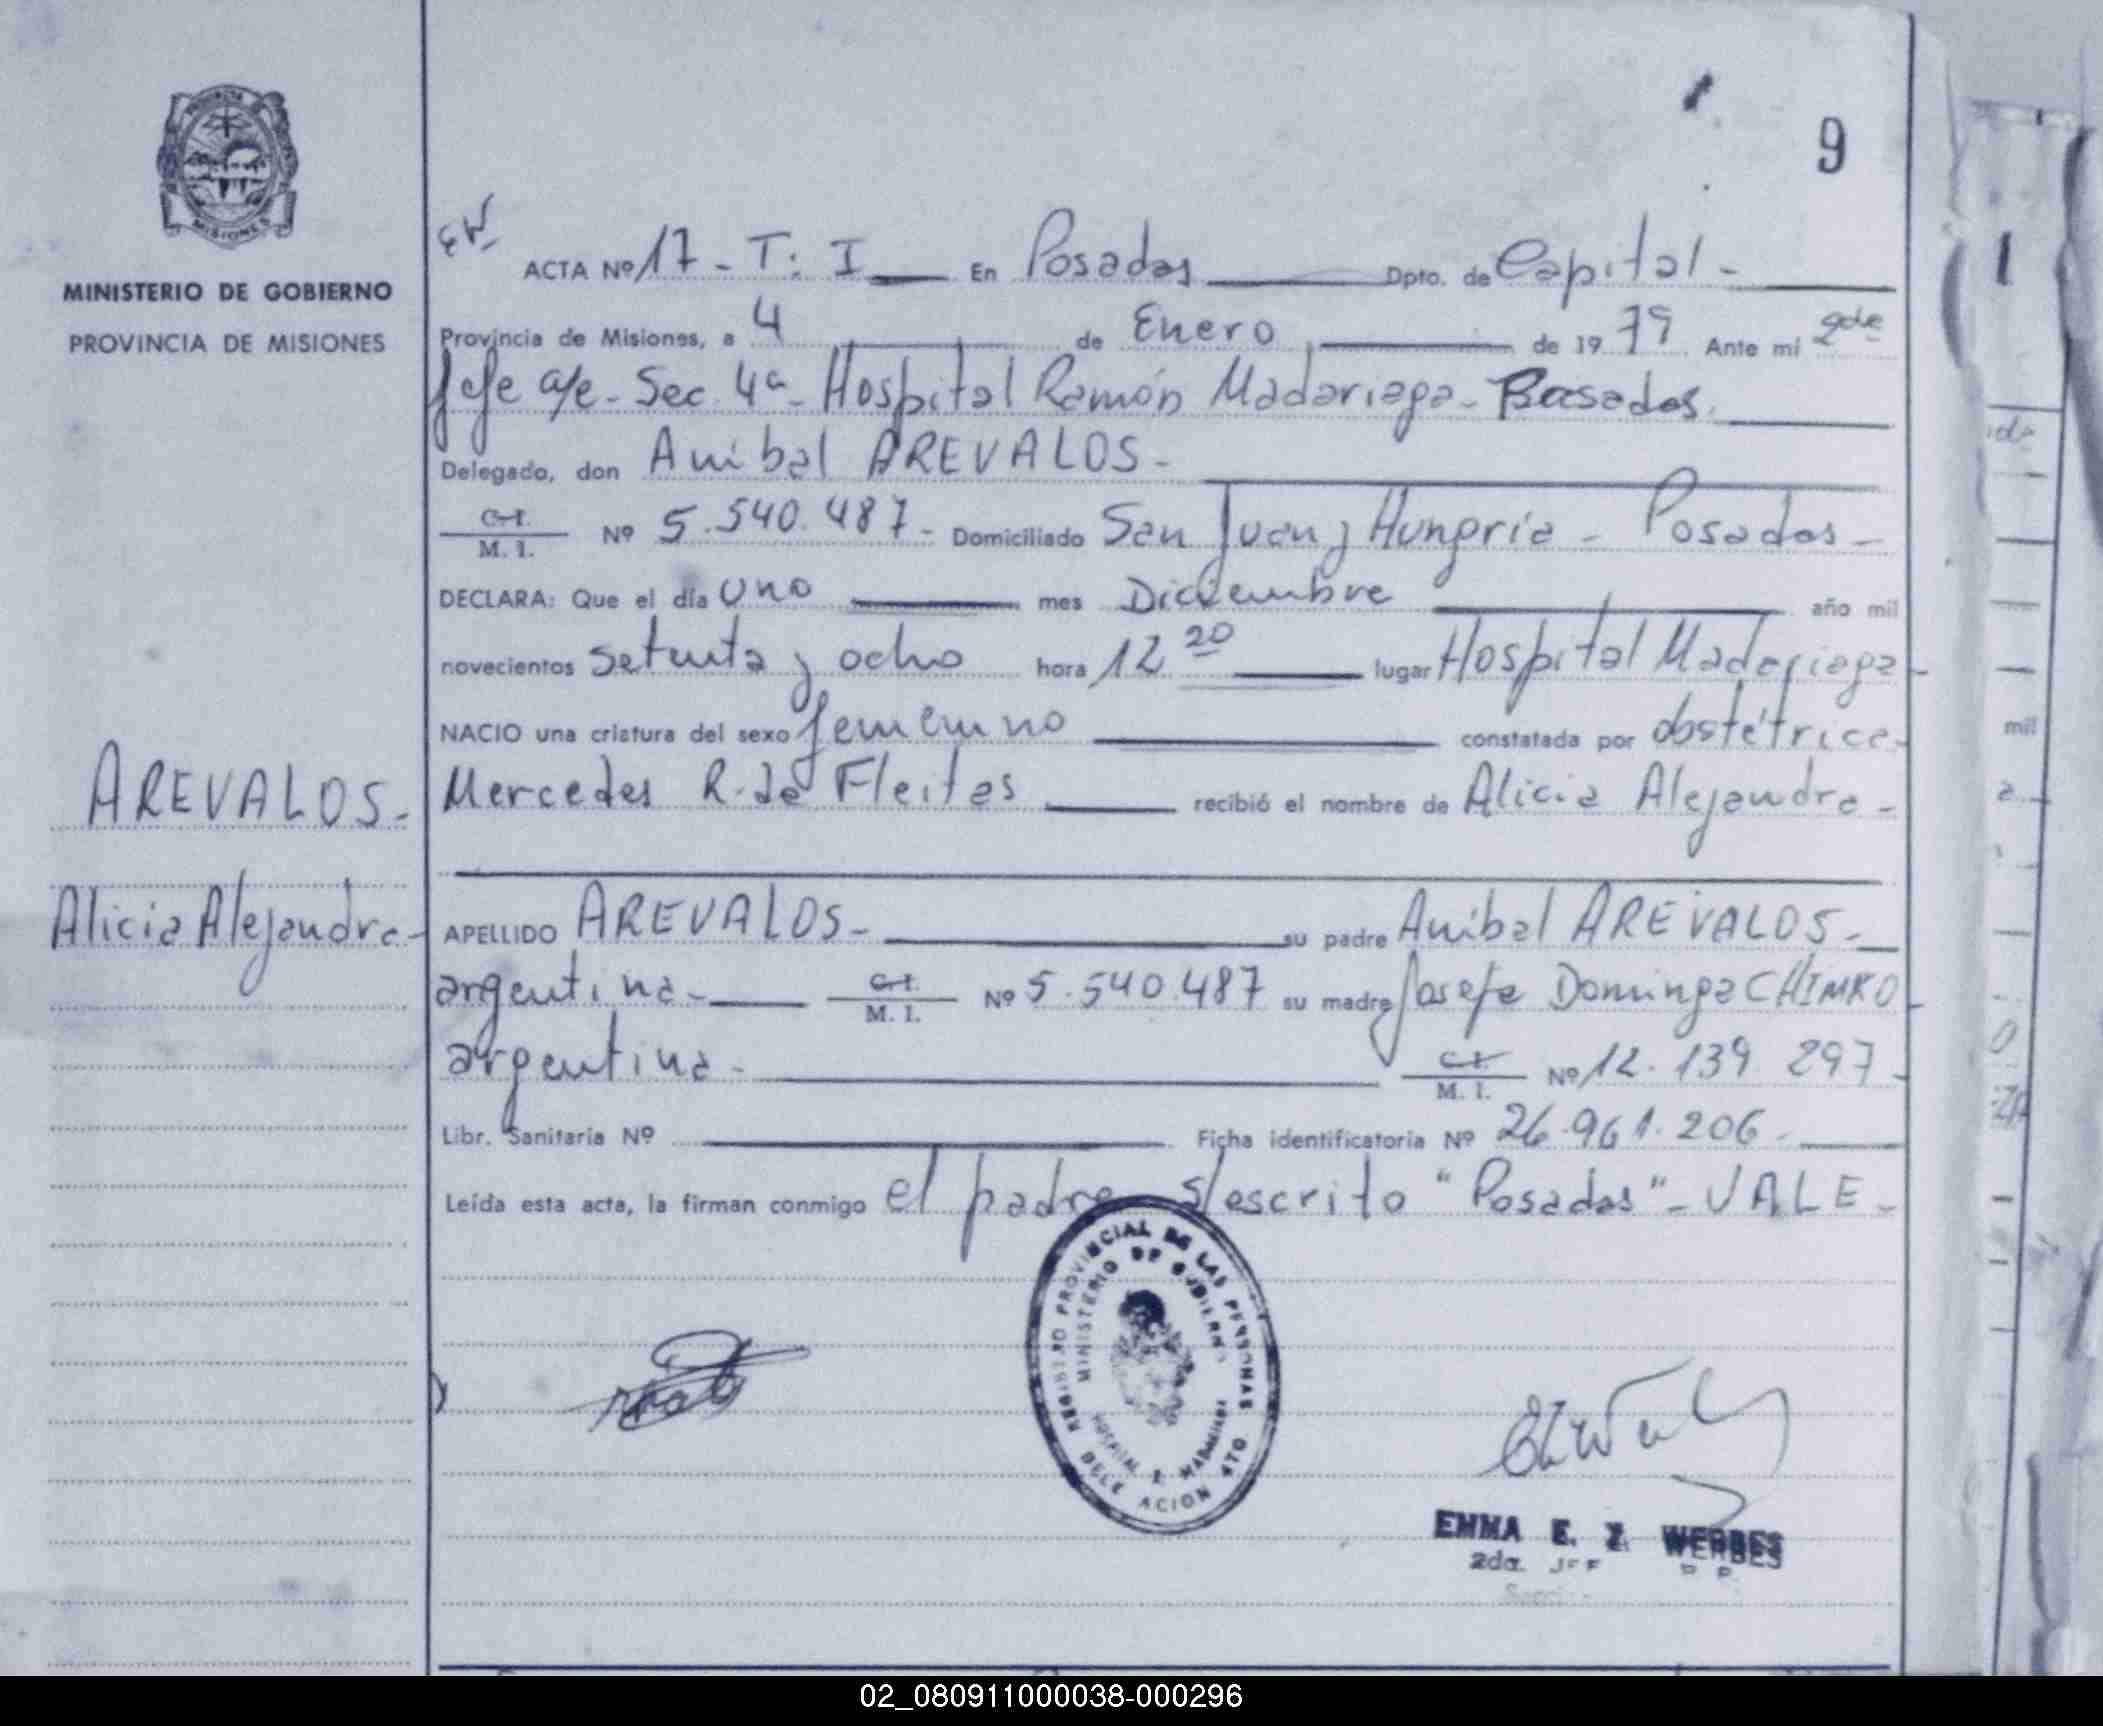 9
PROVINCIA DE
MISIONES
MINISTERIO DE GOBIERNO
PROVINCIA DE MISIONES
AREVALOS-
Alicia Alejandra-
EW
ACTA Nº 17 - T: I En Posadas Dpto. de Capital -
Provincia de Misiones, a 4 de Enero de 19 79 Ante mi 2da
Jefe a/c - Sec. 4ª - Hospital Ramón Madariaga - Posadas.
Delegado, don Anibal AREVALOS -
C. I.
M. I. Nº 5.540.487 - Domiciliado San Juan y Hungría - Posadas -
DECLARA: Que el día uno mes Diciembre año mil
novecientos setenta y ocho hora 12 20 lugar Hospital Madariaga -
NACIO una criatura del sexo femenino constatada por obstétrica
Mercedes R. de Fleitas recibió el nombre de Alicia Alejandra -
APELLIDO AREVALOS - su padre Anibal AREVALOS -
argentina - C. I.
M. I. Nº 5.540.487 su madre Josefa Dominga CHIMKO -
argentina - C. I.
M. I. Nº 12.139.297 -
Libr. Sanitaria Nº Ficha identificatoria Nº 26.961.206 -
Leída esta acta, la firman conmigo el padre s/escrito "Posadas" - VALE -
REGISTRO PROVINCIAL DE LAS PERSONAS
MINISTERIO DE GOBIERNO
HOSPITAL R. MADARIAGA
DELEGACION 4TO
EMMA E. Z. WERBES
2da. JEF
mil
02_080911000038-000296